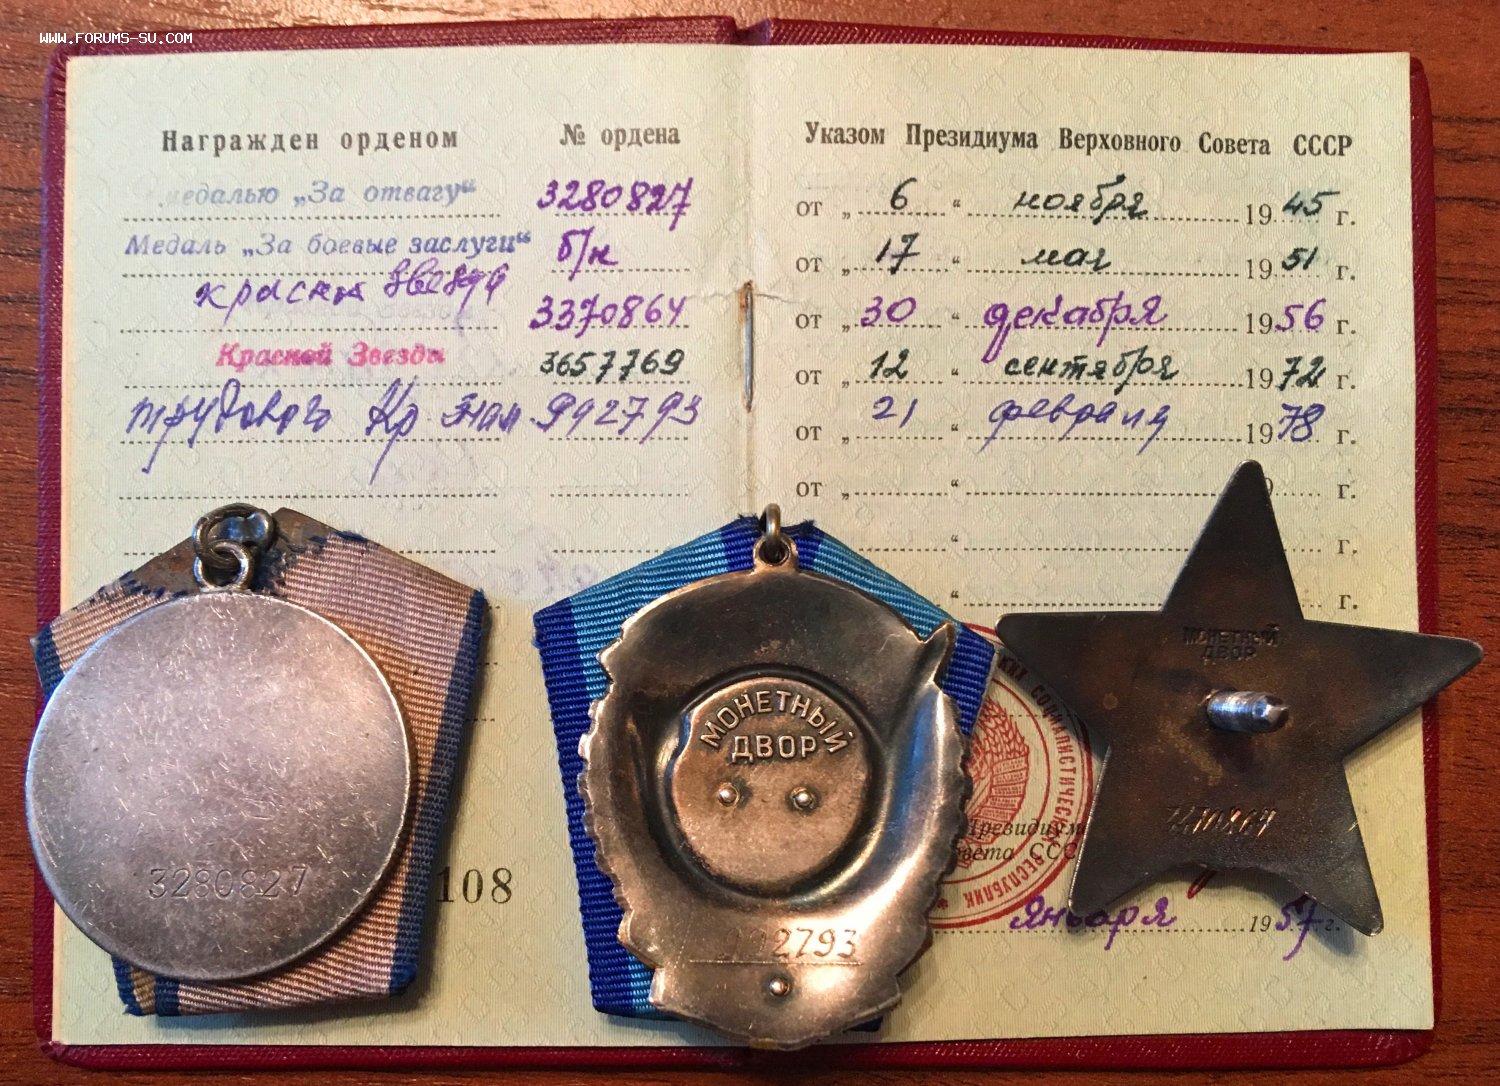 www.forums-su.com
Награжден орденом № ордена Указом Президиума Верховного Совета СССР
медалью „За отвагу“ 3280827 от „ 6 “ ноября 1945 г.
Медаль „За боевые заслуги“ б/н от „ 17 “ мая 1951 г.
Красная звезда 3370864 от „ 30 “ декабря 1956 г.
Красной Звезды 3657769 от „ 12 “ сентября 1972 г.
трудового Кр. Знам 992793 от „ 21 “ февраля 1978 г.
от „ “ г.
“ г.
“ г.
МОНЕТНЫЙ
ДВОР
МОНЕТНЫЙ
ДВОР
СОЦИАЛИСТИЧЕСКИХ РЕСПУБЛИК
Президиума
Совета ССС
3280827
108
2793
января 1957 г.